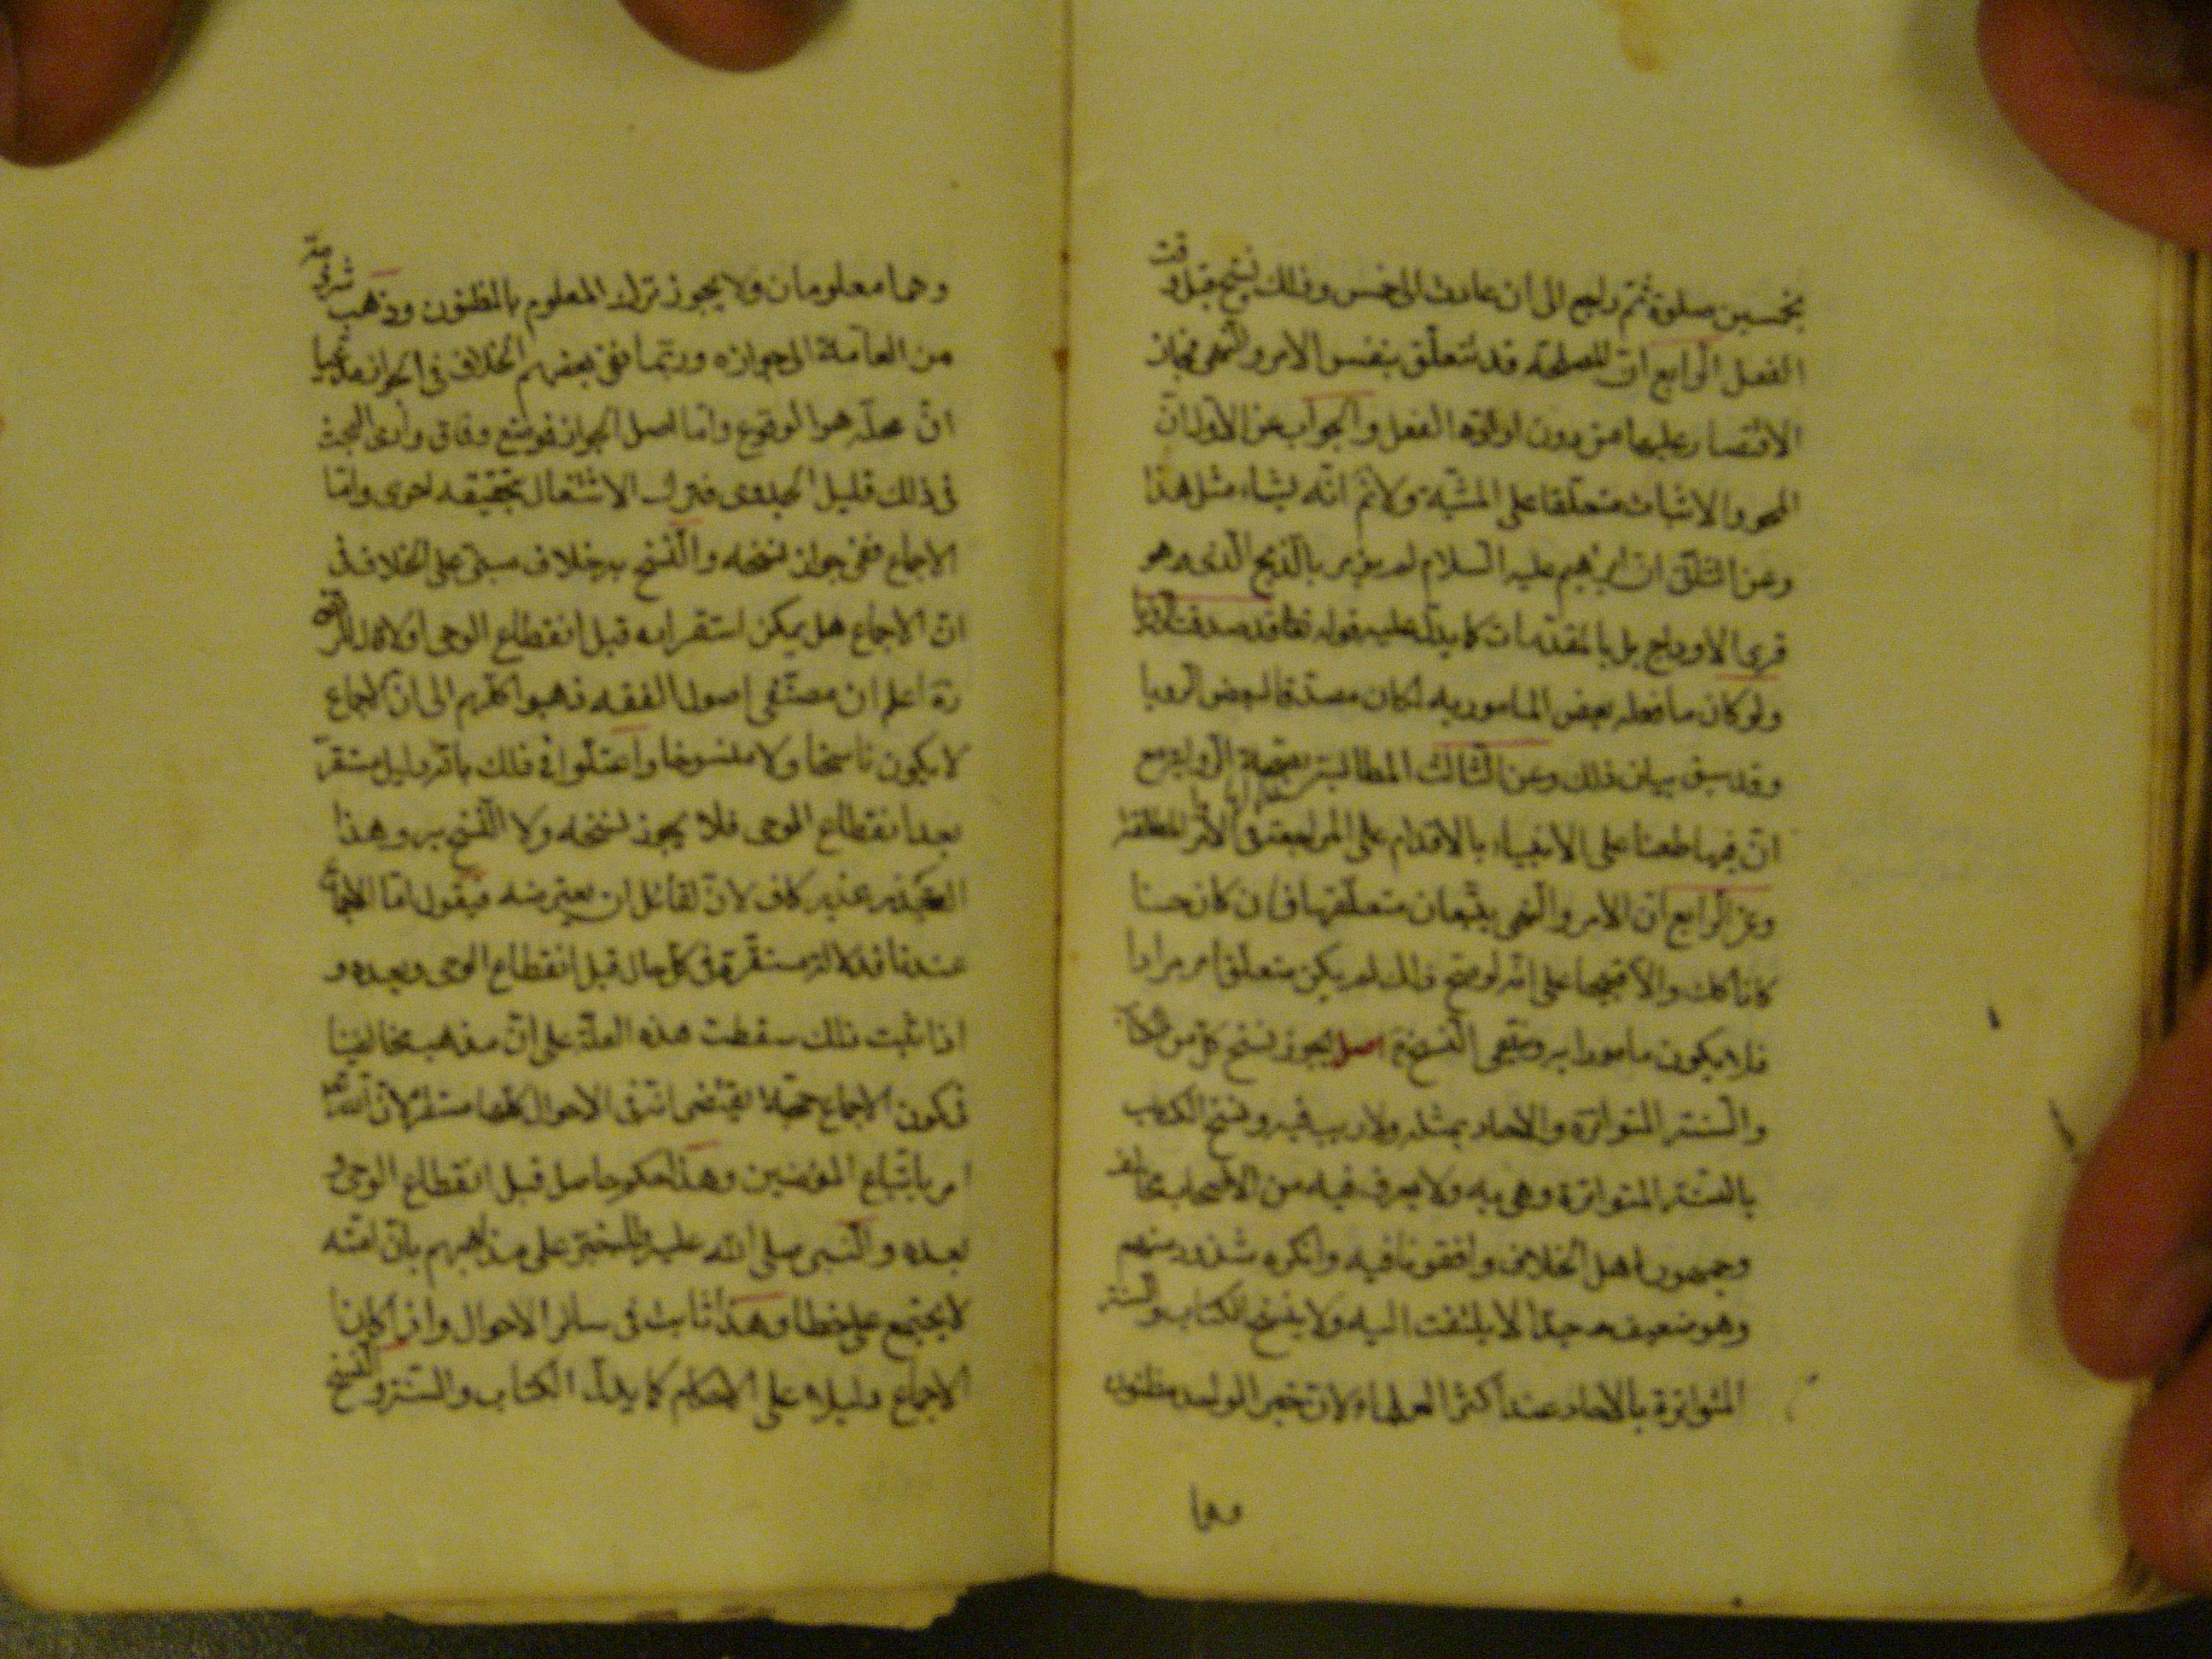 بخمسين صلوة ثم راجع الى ان عادت الى خمس وذلك نسخ قبل وقت
الفعل الرابع ان المصلحة قد تتعلق بنفس الامر والنهى فجاز
الاقتصار عليهما من دون ارادة الفعل والجواب عن الاول ان
المحو والاثبات متعلقا على المشية ولانم انه يشاء مثل هذا
وعن الثانى ان ابرهيم عليه السلام لم يؤمر بالذبح الذى هو
فرى الاوداج بل بالمقدمات كما يدل عليه قوله تعا قد صدقت الرؤيا
ولو كان ما فعله بعض المامور به لكان مصدقا لبعض الرويا
وقد سبق بيان ذلك وعن الثالث المطالبة بصحة الرواية مع
ان فيها طعنا على الانبياء بالاقدام على المراجعة فى الامر المطلقة
وعن الرابع ان الامر والنهى يتبعان متعلقهما فان كان حسنا
كانا كك والا قبيحا على انه لو صح ذلك لم يكن متعلق امر مرادا
فلا يكون مامورا به وينتفى النسخ اصل يجوز نسخ كل من الكتاب
والسنة المتواترة والاحاد بمثله ولا ريب فيه ونسخ الكتاب
بالسنة المتواترة وهى به ولا يعرف فيه من الاصحاب مخالف
وجمهور اهل الخلاف وافقونا فيه وانكره شذوذ منهم
وهو ضعيف جدا لا يلتفت اليه ولا ينسخ الكتاب والسنة
المتواترة بالاحاد عند اكثر العلماء لان خبر الواحد مظنون
وهما
وهما معلومان ولا يجوز ترك المعلوم بالمظنون وذهب شرذمة
من العامة الى جوازه وربما نفى بعضهم الخلاف فى الجواز مدعيا
ان محله هو الوقوع واما اصل الجواز فموضع وفاق وارى البحث
فى ذلك قليل الجدوى فترك الاشتغال بتحقيقه احرى واما
الاجماع ففى جواز نسخه والنسخ به خلاف مبنى على الخلاف فى
ان الاجماع هل يمكن استقراره قبل انقطاع الوحى اولا قال المرتضى
ره اعلم ان مصنفى اصول الفقه ذهبوا كلهم الى ان الاجماع
لا يكون ناسخا ولا منسوخا واعتلوا فى ذلك بانه دليل مستقر
بعد انقطاع الوحى فلا يجوز نسخه ولا النسخ به وهذا
القدر غير كاف لان لقائل ان يعترضه فيقول اما الاجماع
عندنا فدلالته مستقرة فى كل حال قبل انقطاع الوحى وبعده و
اذا ثبت ذلك سقطت هذه العلة على ان مذهب مخالفينا
فى كون الاجماع حجة يقتضى انه فى الاحوال كلها مستقر لان الله تعالى
امر باتباع المؤمنين وهذا حكم حاصل قبل انقطاع الوحى و
بعده والنبى صلى الله عليه واله اخبر على مذاهبهم بان امته
لا يجتمع على خطا وهذا ثابت فى ساير الاحوال واذا كان
الاجماع دليلا على الاحكام كما يدل الكتاب والسنة والنسخ